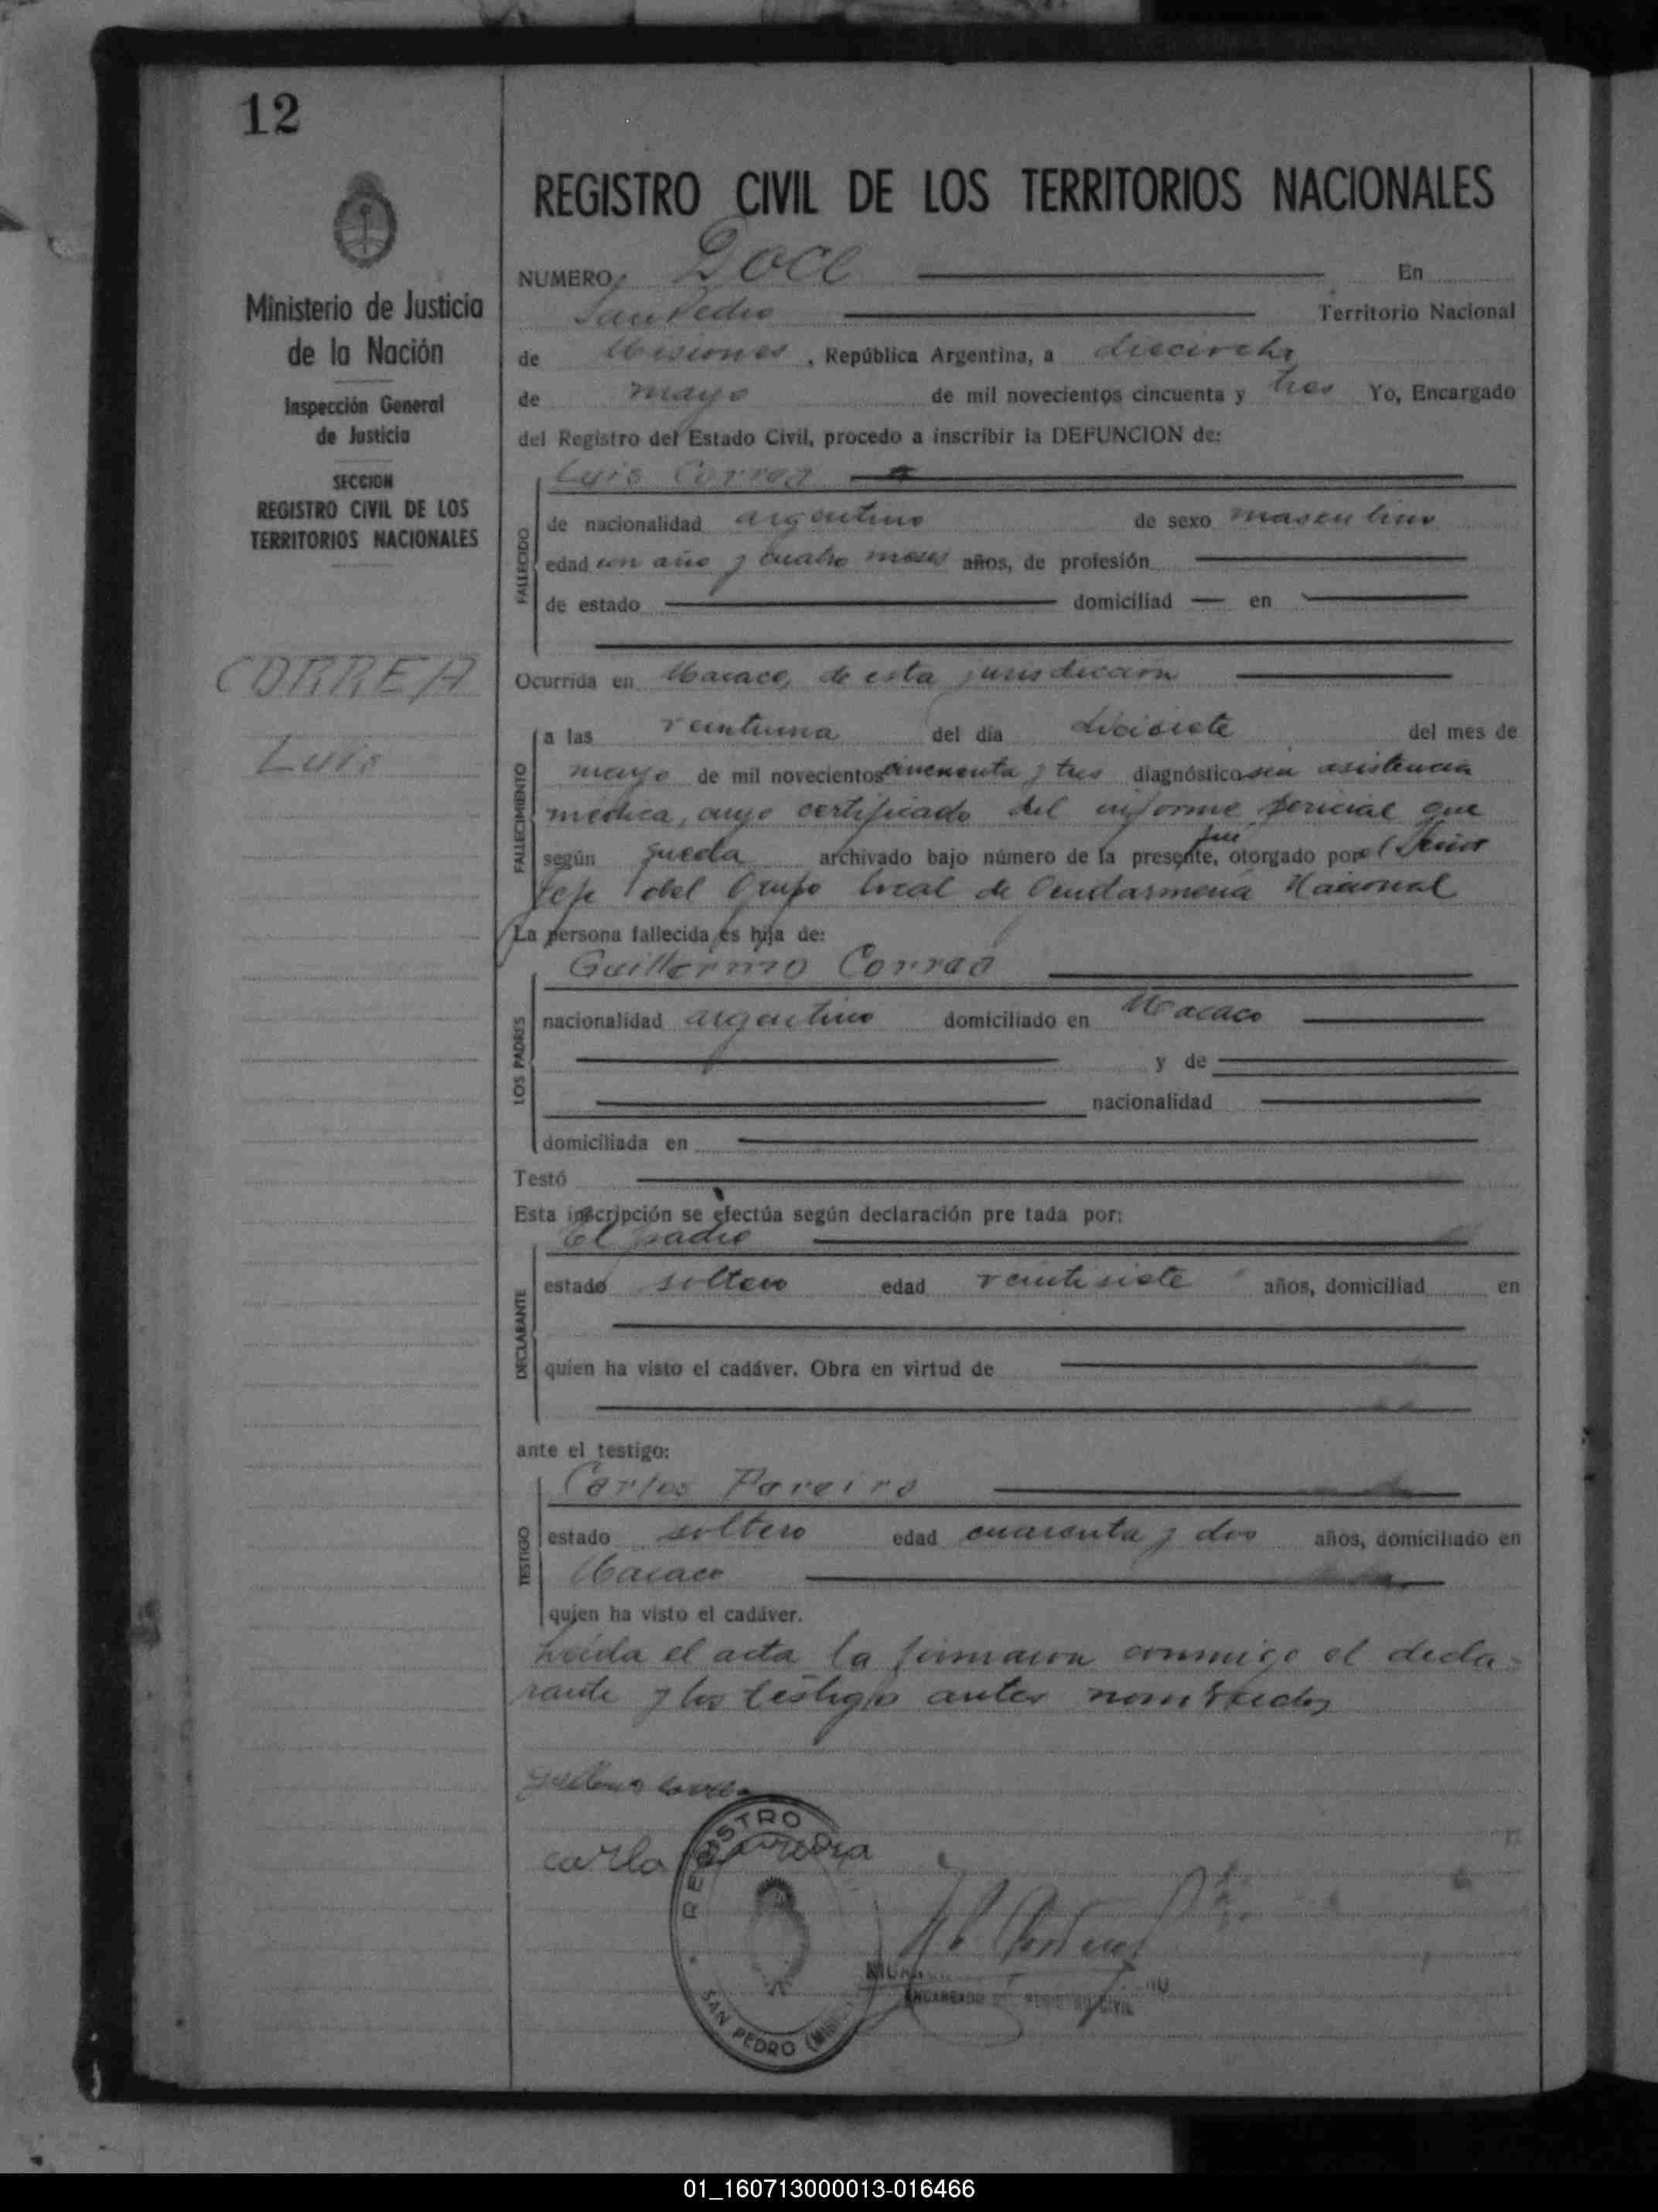 12
Ministerio de Justicia
de la Nación
Inspección General
de Justicia
SECCION
REGISTRO CIVIL DE LOS
TERRITORIOS NACIONALES
CORREA
Luis
REGISTRO CIVIL DE LOS TERRITORIOS NACIONALES
NUMERO Doce En
San Pedro Territorio Nacional
de Misiones, República Argentina, a dieciocho
de mayo de mil novecientos cincuenta y tres Yo, Encargado
del Registro del Estado Civil, procedo a inscribir la DEFUNCION de:
Luis Correa
FALLECIDO
de nacionalidad argentino de sexo masculino
edad un año y cuatro meses años, de profesión
de estado domiciliad en
Ocurrida en Macaco, de esta jurisdiccion
FALLECIMIENTO
a las veintiuna del día diecisiete del mes de
mayo de mil novecientos cincuenta y tres diagnóstico sin asistencia
medica, cuyo certificado del informe pericial que
según queda archivado bajo número de la presente, fué otorgado por el Señor
Jefe del Grupo local de Gendarmeria Nacional
La persona fallecida es hija de:
Guillermo Correa
LOS PADRES
nacionalidad argentino domiciliado en Macaco
y de
nacionalidad
domiciliada en
Testó
Esta inscripción se efectúa según declaración pre tada por:
El padre
DECLARANTE
estado soltero edad veintisiete años, domiciliad en
quien ha visto el cadáver. Obra en virtud de
ante el testigo:
Carlos Pareira
TESTIGO
estado soltero edad cuarenta y dos años, domiciliado en
Macaco
quien ha visto el cadáver.
Leída el acta la firmaron conmigo el decla-
rante y los testigo antes nombrados
carlo Pareira
REGISTRO
SAN PEDRO
ENCARGADO DEL REGISTRO CIVIL
01_160713000013-016466